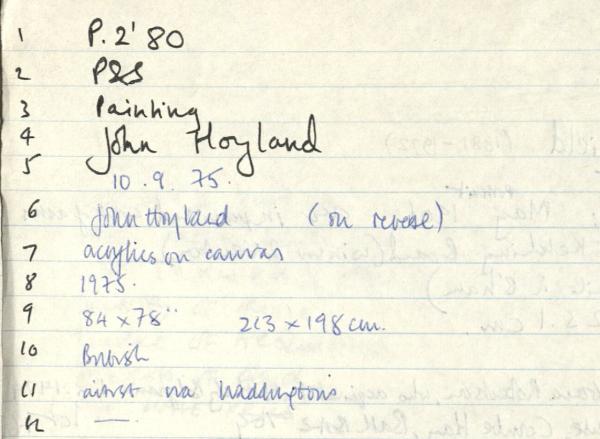 1 P.2'80
2 P&S
3 Painting
4 John Hoyland
5 10.9.75.
6 John Hoyland (on reverse)
7 acrylics on canvas
8 1975.
9 84 x 78" 213 x 198 cm.
10 British
11 artist via Waddingtons
12 —